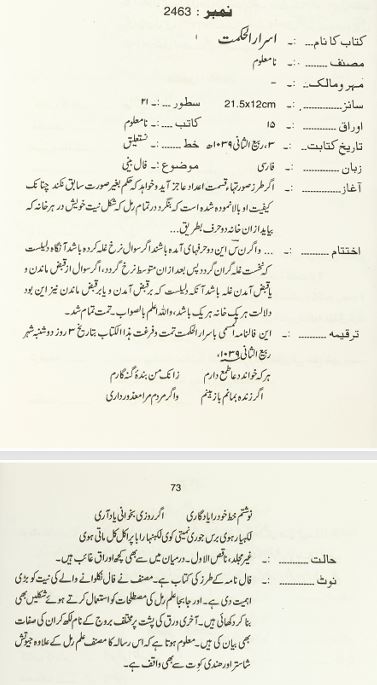 نمبر : 2463
کتاب کا نام ... :۔ اسرار الحکمت
مصنف ....... :۔ نامعلوم
مہر و مالک .. :۔ –
سائز ............ :۔ 21.5x12cm سطور ... :۔ ۲۱
اوراق ........... :۔ ۱۵ کاتب .... :۔ نامعلوم
تاریخ کتابت.. :۔ ۳، ربیع الثانی ۱۰۳۹ھ خط ....... :۔ نستعلیق
زبان ............ :۔ فارسی موضوع :۔ فال بینی
آغاز ............. :۔ اگر طرز صورتہاء قسمت اعداد عاجز آید و خواہد کہ حکم بغیر صورت سابق نکند چنانک
کیفیت او بالا نمودہ شدہ است کہ بنگرد در تمام رمل کہ شکل نیت خویش در ہر خانہ کہ
بیاید از ان خانہ دو حرف بطریق...
اختتام .......... :۔ ... واگر ن س این دو حرفہای آمدہ باشند اگر سوال نرخ غلہ کردہ باشد آنگاہ دلیلست
کہ نخست غلہ گران گردد پس بعد ازان متوسط نرخ گردد، اگر سوال از قبض ماندن و
یا قبض آمدن غلہ باشد آنکہ دلیلست کہ بر قبض آمدن و یا بر قبض ماندن نیز این بود
دلالت ہر یک خانہ ہر یک باشد، واللہ اعلم بالصواب۔ تمت تمام شد۔
ترقیمہ .......... :۔ این فالنامہ المسمی باسرار الحکمت تمت و فرغت ہذا الکتاب بتاریخ ۳ روز دوشنبہ شہر
ربیع الثانی ۱۰۳۹۔
ہر کہ خواند دعا طمع دارم زانک من بندۂ گنہ گارم
اگر زندہ بمانم باز بینم و اگر مردم مرا معذور داری
73
نوشتم خط خود را یادگاری اگر روزی بخوانی یاد آری
لکہیا رہوی برس جوری نمیٹی کوی لکہنہارا بابرا گل گل ماٹی ہوی
حالت ........... :۔ غیر مجلد، ناقص الاول۔ درمیان میں سے بھی کچھ اوراق غائب ہیں۔
نوٹ ............. :۔ فال نامہ کے طرز کی کتاب ہے۔ مصنف نے فال نکلوانے والے کی نیت کو بڑی
اہمیت دی ہے۔ اور جا بجا علم رمل کی مصطلحات کو استعمال کرتے ہوئے شکلیں بھی
بنا کر دکھائی ہیں۔ آخری ورق کی پشت پر مختلف بروج کے نام لکھ کر ان کی صفات
بھی بیان کی ہیں۔ معلوم ہوتا ہے کہ اس رسالہ کا مصنف علم رمل کے علاوہ جیوتش
شاستر اور ھندی کوت سے بھی واقف ہے۔